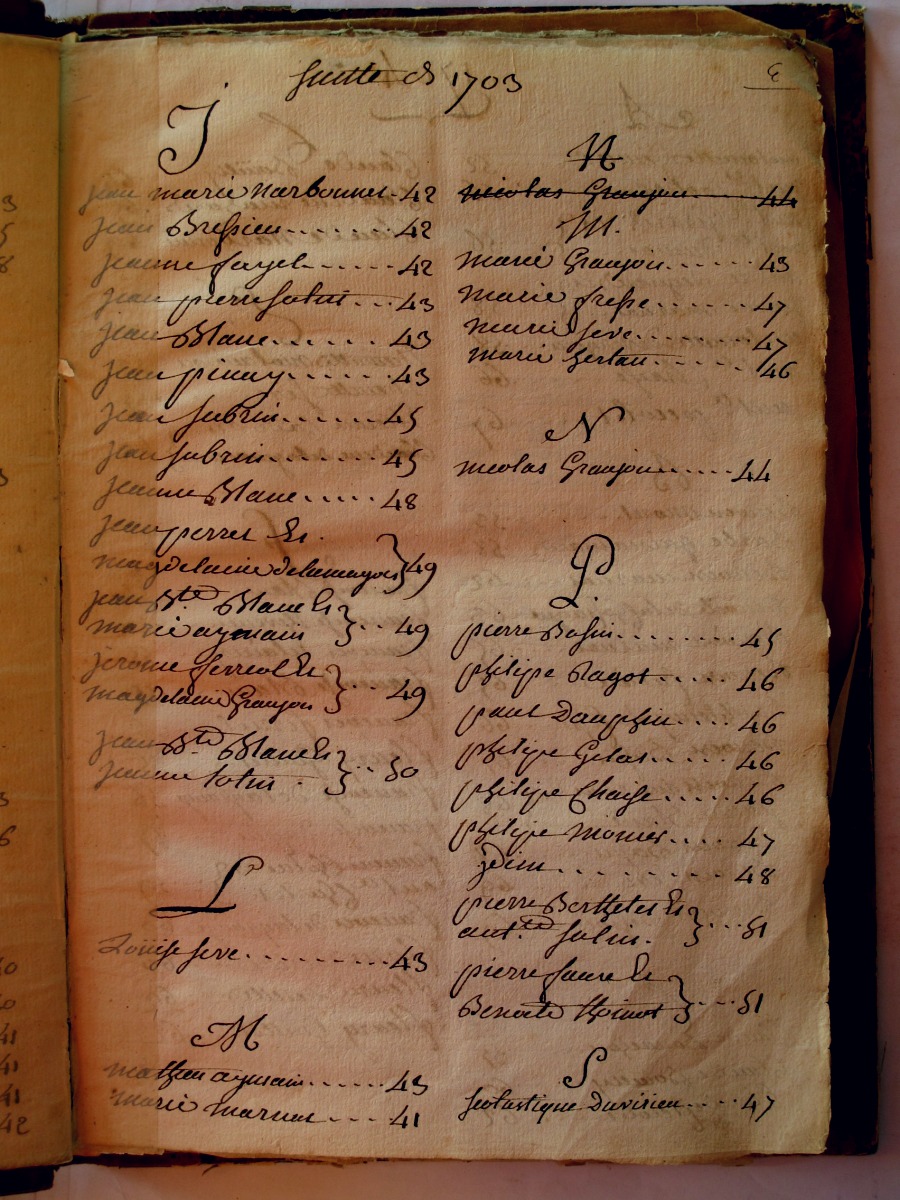 Suitte de 1703
6
J
jean marie Narbonnet - 42
jean Bressieu - - - - - - 42
jeanne fayel - - - - - 42
jean pierre Solut - - - 43
jean Blanc - - - - - - 43
jean pinay - - - - - - 43
jean Jubrin - - - - - 45
jean Jubrin - - - - - 45
jeanne Blanc - - - - - 48
jean perret Et
magdelaine delamayois } 49
jean Bte Blanc Et
marie aymain } - - 49
jerome ferreol Et
magdelaine Granjon } - - 49
jean Bte Blanc Et
jeanne } - - 50
L
Loüise seve - - - - - - - - - 43
M
mathieu aymain - - - - - - 43
marie marnat - - - - 41
N
nicolas Granjon - - - - - - 44
M.
marie Granjon - - - - - 43
marie fresse - - - - - 47
marie seve - - - - - - 47
marie - - - - - 46
N
nicolas Granjon - - - - - - 44
P.
pierre Bassin - - - - - - - 45
philipe Ragot - - - - - 46
paul Dauphin - - - - 46
philipe Gelas - - - - - 46
philipe Chaise - - - - - 46
philipe monier - - - - 47
jdem - - - - - - - - 48
pierre Berthelet Et
ant.te } - - - 51
pierre faure Et
Benoite Thoinot } - - - - 51
S
scolastique Duvisieu - - - - 47
3
5
8
3
3
6
40
40
41
41
41
42